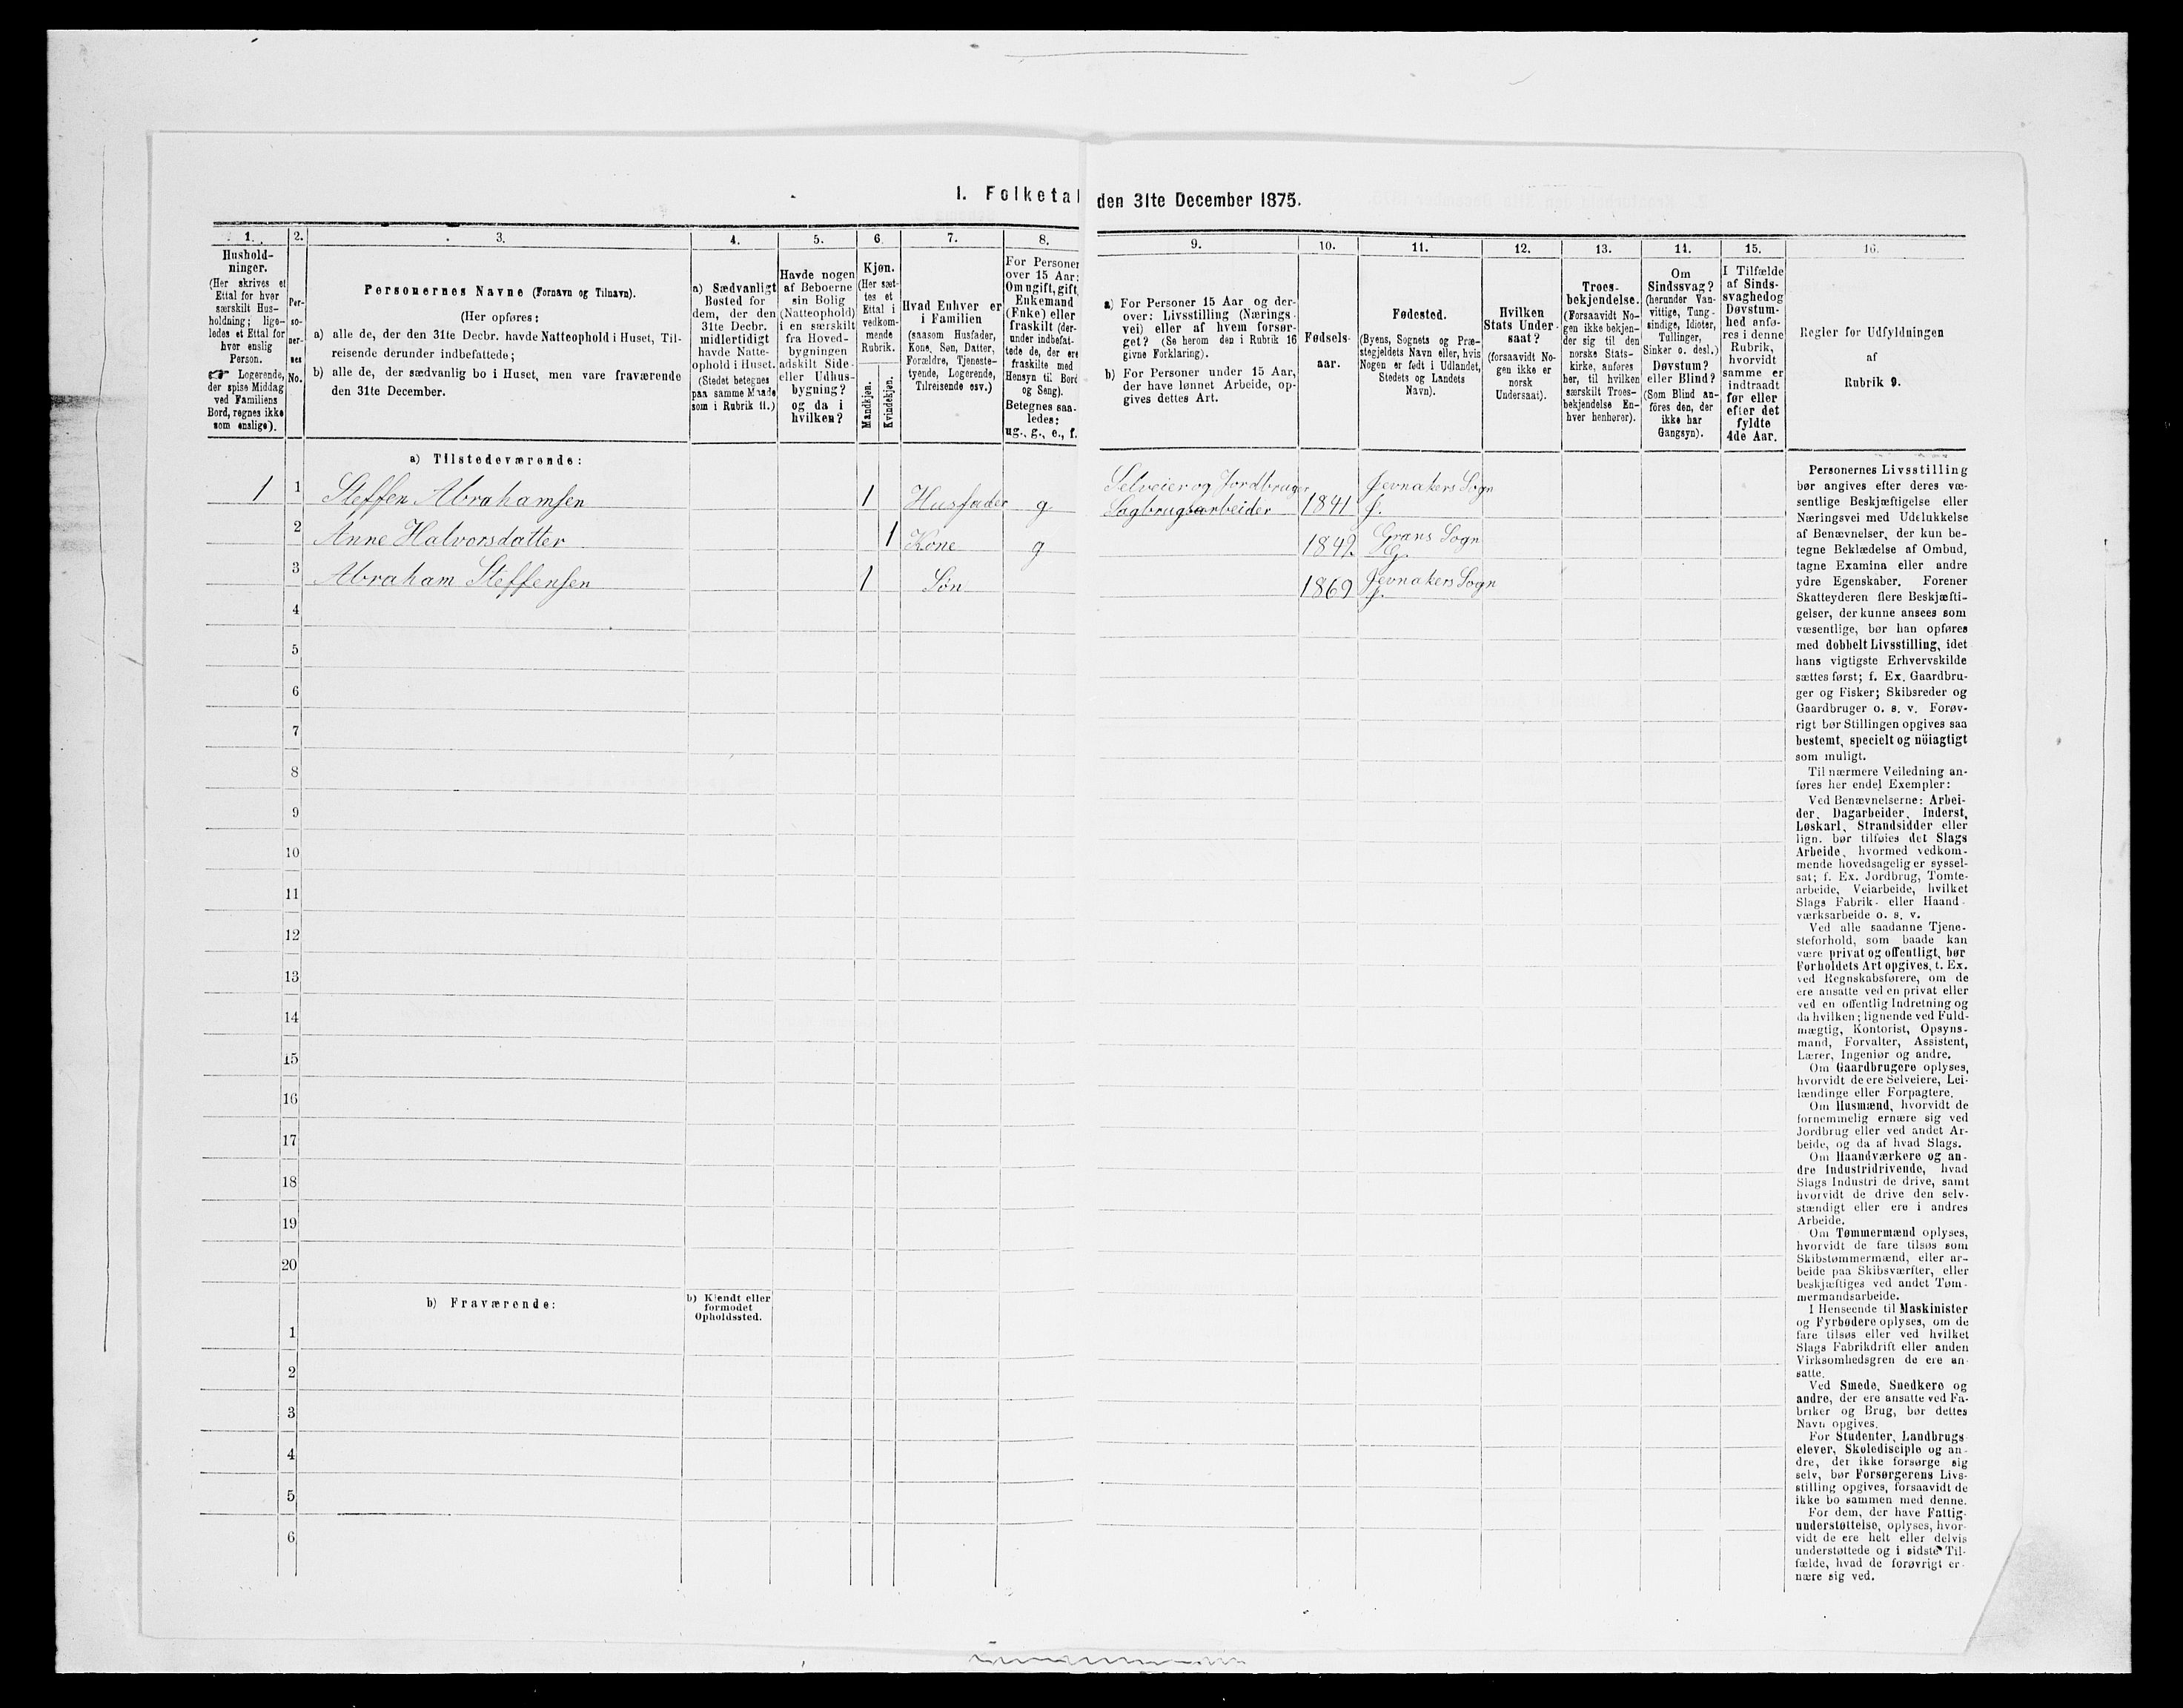 I. Folketal den 31te December 1875.
1.
2.
3.
4.
5.
6.
7.
8.
9.
10.
11.
12.
13.
14.
15.
16.
Hushold-
ninger.
(Her skrives et
Ettal for hver
særskilt Hus-
holdning; lige-
ledes et Ettal for
hver enslig
Person.
☞ Logerende,
der spise Middag
ved Familiens
Bord, regnes ikke
som enslige).
Per-
so-
ner-
nes
No.
Personernes Navne (Fornavn og Tilnavn).
(Her opføres:
a) alle de, der den 31te Decbr. havde Natteophold i Huset, Til-
reisende derunder indbefattede;
b) alle de, der sædvanlig bo i Huset, men vare fraværende
den 31te December.
a) Sædvanligt
Bosted for
dem, der den
31te Decbr.
midlertidigt
havde Natte-
ophold i Huset.
(Stedet betegnes
paa samme Maade
som i Rubrik 11.)
Havde nogen
af Beboerne
sin Bolig
(Natteophold)
i en særskilt
fra Hoved-
bygningen
adskilt Side-
eller Udhus-
bygning?
og da i
hvilken?
Kjøn.
(Her sæt-
tes et
Ettal i
vedkom-
mende
Rubrik.
Mandkjøn.
Kvindekjøn.
Hvad Enhver er
i Familien
(saasom Husfader,
Kone, Søn, Datter,
Forældre, Tjeneste-
tyende, Logerende,
Tilreisende osv.)
For Personer
over 15 Aar:
Om ugift, gift,
Enkemand
(Enke) eller
fraskilt (der-
under indbefat-
tede de, der ere
fraskilte med
Hensyn til Bord
og Seng).
Betegnes saa-
ledes:
ug., g., e., f.
a) For Personer 15 Aar og der-
over: Livsstilling (Nærings-
vei) eller af hvem forsør-
get? (Se herom den i Rubrik 16
givne Forklaring).
b) For Personer under 15 Aar,
der have lønnet Arbeide, op-
gives dettes Art.
Fødsels-
aar.
Fødested.
(Byens, Sognets og Præ-
stegjeldets Navn eller, hvis
Nogen er født i Udlandet,
Stedets og Landets
Navn).
Hvilken
Stats Under-
saat?
(forsaavidt No-
gen ikke er
norsk
Undersaat).
Troes-
bekjendelse.
(Forsaavidt No-
gen ikke bekjen-
der sig til den
norske Stats-
kirke, anføres
her, til hvilken
særskilt Troes-
bekjendelse En-
hver henhører).
Om
Sindssvag?
(herunder Van-
vittige, Tung-
sindige, Idioter,
Tullinger,
Sinker o. desl.)
Døvstum?
eller Blind?
(Som Blind an-
føres den, der
ikke har
Gangsyn).
I Tilfælde
af Sinds-
svaghed og
Døvstum-
hed anfø-
res i denne
Rubrik,
hvorvidt
samme er
indtraadt
før eller
efter det
fyldte
4de Aar.
Regler for Udfyldningen
af
Rubrik 9.
a) Tilstedeværende:
1 1 Steffen Abrahamsen 1 Husfader g. Selveier og Jordbruger Sagbrugsarbeider 1841 Jevnakers Sogn J.
2 Anne Halvorsdatter 1 Kone g 1842 Grans Sogn G.
3 Abraham Steffensen 1 Søn 1869 Jevnakers Sogn J.
4
5
6
7
8
9
10
11
12
13
14
15
16
17
18
19
20
b) Fraværende:
b) Kjendt eller
formodet
Opholdssted.
1
2
3
4
5
6
Personernes Livsstilling
bør angives efter deres væ-
sentlige Beskjæftigelse eller
Næringsvei med Udelukkelse
af Benævnelser, der kun be-
tegne Beklædelse af Ombud,
tagne Examina eller andre
ydre Egenskaber. Forener
Skatteyderen flere Beskjæfti-
gelser, der kunne ansees som
væsentlige, bør han opføres
med dobbelt Livsstilling, idet
hans vigtigste Erhvervskilde
sættes først; f. Ex. Gaardbru-
ger og Fisker; Skibsreder og
Gaardbruger o. s. v. Forøv-
rigt bør Stillingen opgives saa
bestemt, specielt og nöiagtigt
som muligt.
Til nærmere Veiledning an-
føres her endel Exempler:
Ved Benævnelserne: Arbei-
der, Dagarbeider, Inderst,
Løskarl, Strandsidder eller
lign. bør tilføies det Slags
Arbeide, hvormed vedkom-
mende hovedsagelig er syssel-
sat; f. Ex. Jordbrug, Tomte-
arbeide, Veiarbeide, hvilket
Slags Fabrik- eller Haand-
værksarbeide o. s. v.
Ved alle saadanne Tjene-
steforhold, som baade kan
være privat og offentligt, bør
Forholdets Art opgives, t. Ex.
ved Regnskabsførere, om de
ere ansatte ved en privat eller
ved en offentlig Indretning og
da hvilken; lignende ved Fuld-
mægtig, Kontorist, Opsyns-
mand, Forvalter, Assistent,
Lærer, Ingeniør og andre.
Om Gaardbrugere oplyses,
hvorvidt de ere Selveiere, Lei-
lændinge eller Forpagtere.
Om Husmænd, hvorvidt de
fornemmelig ernære sig ved
Jordbrug eller ved andet Ar-
beide, og da af hvad Slags.
Om Haandværkere og an-
dre Industridrivende, hvad
Slags Industri de drive, samt
hvorvidt de drive den selv-
stændigt eller ere i andres
Arbeide.
Om Tømmermænd oplyses,
hvorvidt de fare tilsøs som
Skibstømmermænd, eller ar-
beide paa Skibsværfter, eller
beskjæftiges ved andet Tøm-
mermandsarbeide.
I Henseende til Maskinister
og Fyrbødere oplyses, om de
fare tilsøs eller ved hvilket
Slags Fabrikdrift eller anden
Virksomhedsgren de ere an-
satte.
Ved Smede, Snedkere og
andre, der ere ansatte ved Fa-
briker og Brug, bør dettes
Navn opgives.
For Studenter, Landbrugs-
elever, Skoledisciple og an-
dre, der ikke forsørge sig
selv, bør Forsørgerens Livs-
stilling opgives, forsaavidt de
ikke bo sammen med denne.
For dem, der have Fattig-
understøttelse, oplyses, hvor-
vidt de ere helt eller delvis
understøttede og i sidste Til-
fælde, hvad de forøvrigt er-
nære sig ved.